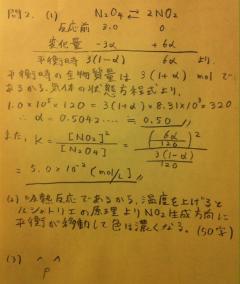 問2. (1) N₂O₄ ⇄ 2NO₂
反応前 3.0 0
変化量 -3α +6α
平衡時 3(1-α) 6α より.
平衡時の全物質量は 3(1+α) mol で
あるから. 気体の状態方程式より.
1.0×10⁵×120 = 3(1+α)×8.31×10³×320
∴ α = 0.5042…… ≒ 0.50
また, K = [NO₂]² / [N₂O₄] = (6α/120)² / (3(1-α)/120)
= 5.0×10⁻² (mol/L)
(2) 吸熱反応であるから, 温度を上げると
ルシャトリエの原理よりNO₂生成方向に
平衡が移動して色は濃くなる. (50字)
(3)